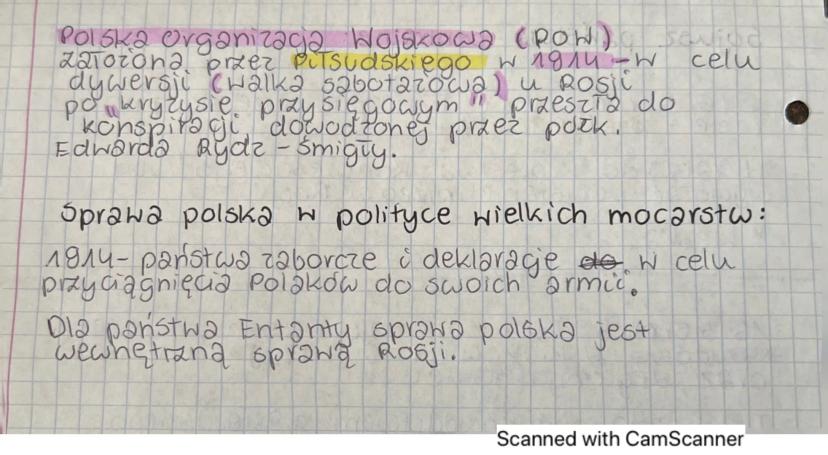 Polska Organizacja Wojskowa (POW)
założona przez Piłsudskiego w 1914 - w celu
dywersji (walka sabotażowa) u Rosji
po "kryzysie przysięgowym" przeszła do
konspiracji, dowodzonej przez połk.
Edwarda Rydz - Śmigły.
Sprawa polska w polityce wielkich mocarstw:
1914 - państwa zaborcze i deklaracje do w celu
przyciągnięcia Polaków do swoich armii.
Dla państwa Ententy sprawa polska jest
wewnętrzną sprawą Rosji.
Scanned with CamScanner